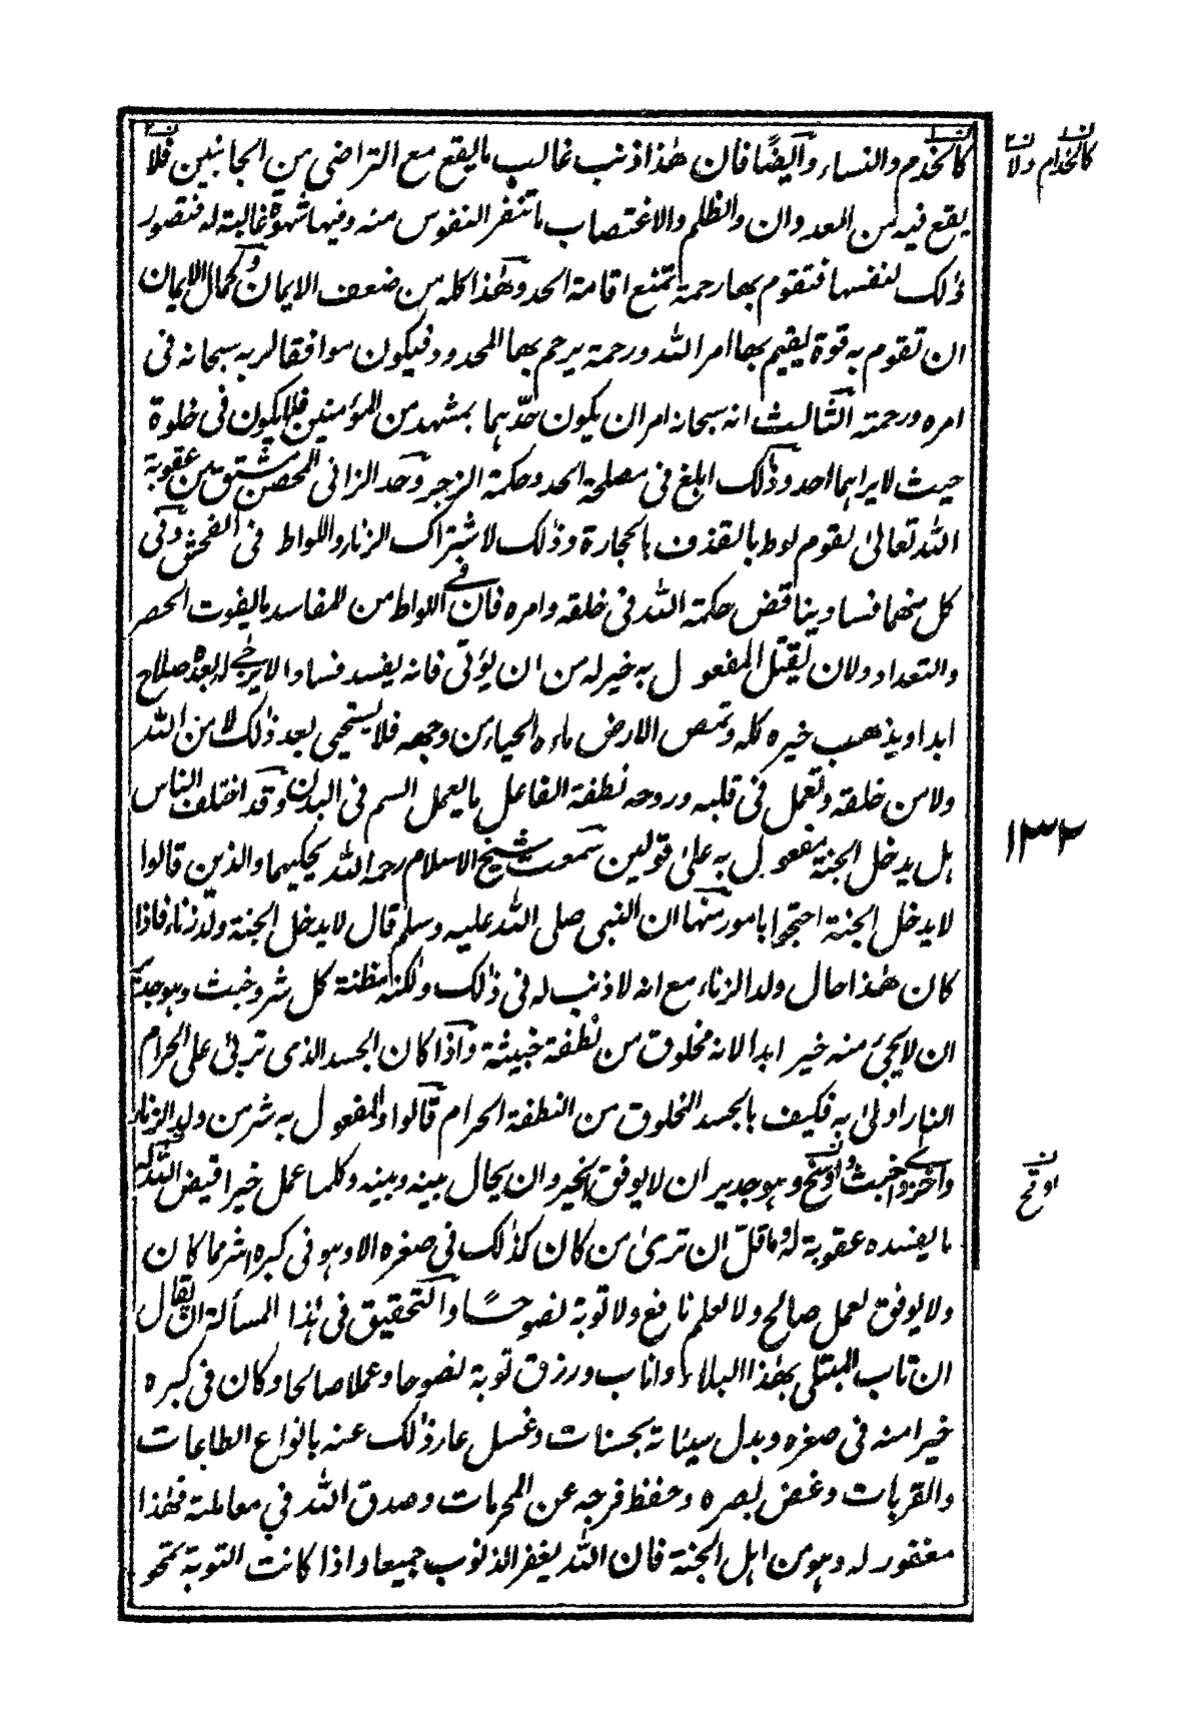 كالخدم والنساء وأيضًا فان هذا ذنب غالب ما يقع مع التراضي من الجانبين فلا
يقع فيه من العدوان والظلم والاغتصاب ما تنفر النفوس منه وفيها شهوة غالبة له فتصور
ذلك لنفسها فتقوم بها رحمة تمنع اقامة الحد وهذا كله من ضعف الايمان وكمال الايمان
ان تقوم به قوة يقيم بها امر الله ورحمة يرحم بها المحدود فيكون موافقا لربه سبحانه في
امره ورحمته الثالث انه سبحانه امر ان يكون حدّهما بمشهد من المؤمنين فلا يكون في خلوة
حيث لا يراهما احد وذلك ابلغ في مصلحة الحد وحكمة الزجر وحد الزاني المحصن مشتق من عقوبة
الله تعالى لقوم لوط بالقذف بالحجارة وذلك لاشتراك الزناء واللواط في الفحش وفي
كل منهما فساد يناقض حكمة الله في خلقه وامره فان في اللواط من المفاسد ما يفوت الحصر
والتعداد ولان يقتل المفعول به خير له من ان يؤتى فانه يفسد فسادا لا يرجى له بعده صلاح
ابدا ويذهب خيره كله وتمص الارض ماءه الحياء من وجهه فلا يستحيى بعد ذلك لا من الله
ولا من خلقه وتعمل في قلبه وروحه نطفة الفاعل ما يعمل السم في البدن وقد اختلف الناس
هل يدخل الجنة مفعول به على قولين سمعت شيخ الاسلام رحمه الله يحكيهما والذين قالوا
لا يدخل الجنة احتجوا بامور منها ان النبي صلى الله عليه وسلم قال لا يدخل الجنة ولد زناء فاذا
كان هذا حال ولد الزناء مع انه لا ذنب له في ذلك ولكنه مظنة كل شر وخبث وهو جدير
ان لا يجيئ منه خير ابدا لانه مخلوق من نطفة خبيثة واذا كان الجسد الذي تربى على الحرام
النار اولى به فكيف بالجسد المخلوق من النطفة الحرام قالوا والمفعول به شر من ولد الزناء
واخزى واخبث واوسخ وهو جدير ان لا يوفق لخير وان يحال بينه وبينه وكلما عمل خيرا قيض الله له
ما يفسده عقوبة له وما قلّ ان ترى من كان كذلك في صغره الا وهو في كبره اشر مما كان
ولا يوفق لعمل صالح ولا لعلم نافع ولا توبة نصوحًا والتحقيق في هذا المسألة ان يقال
ان تاب المبتلى بهذا البلاء واناب ورزق توبة نصوحا وعملا صالحا وكان في كبره
خيرا منه في صغره وبدل سيئاته بحسنات وغسل عار ذلك عنه بانواع الطاعات
والقربات وغض بصره وحفظ فرجه عن المحرمات وصدق الله في معاملته فهذا
مغفور له وهو من اهل الجنة فان الله يغفر الذنوب جميعا واذا كانت التوبة تمحو
كالخدام ولان
١٣٢
اوقح